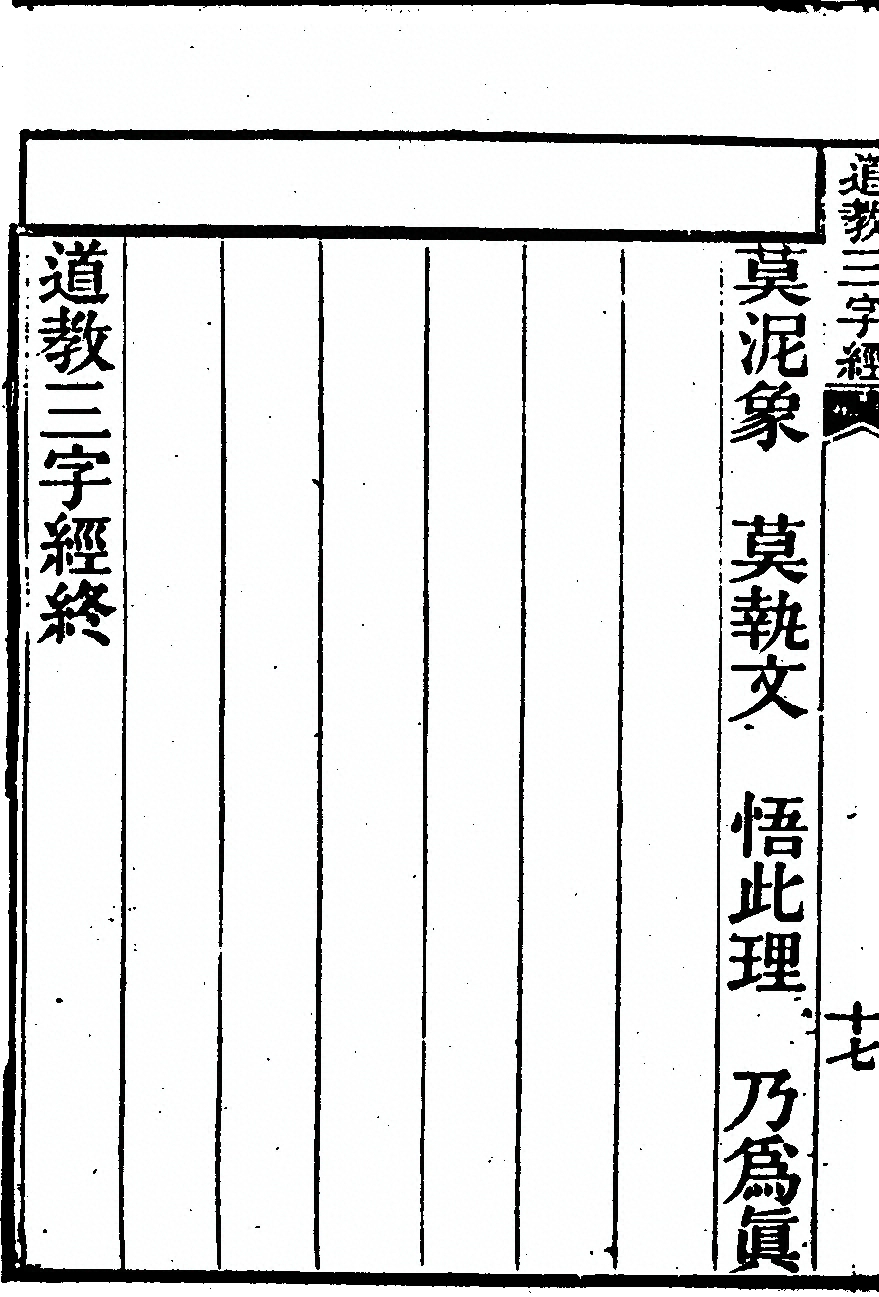 道教三字經
十七
莫泥象　莫執文　悟此理　乃爲眞
道教三字經終